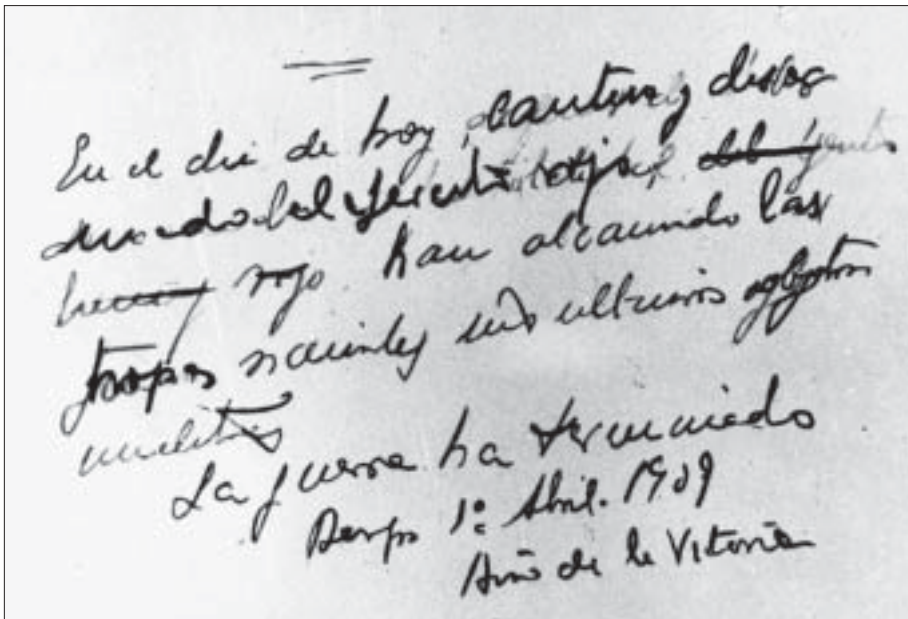 En el dia de hoy, cautivo y desar
mado el Ejercito rojo,
rojo han alcanzado las
tropas nacionales sus ultimos objetivos
militares
La guerra ha terminado
Burgos 1º Abril. 1939
Año de la Vitoria